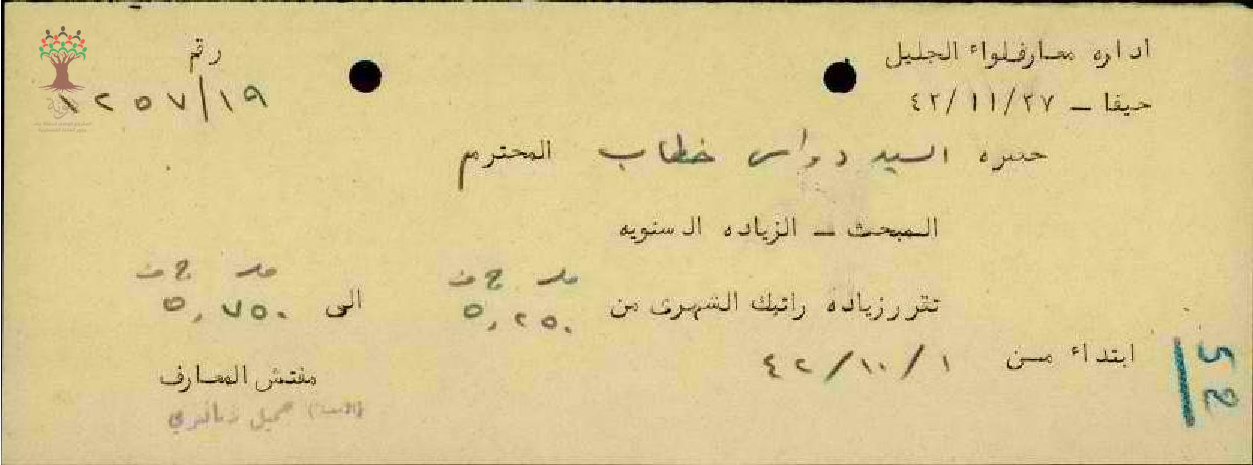 اداره معارف لواء الجليل
رقم
حيفا – ٤٢/١١/٢٧
١٢٥٧/١٩
حضره السيد دواس خطاب المحترم
المبحث – الزياده السنويه
مل ج ف
مل ج ف
تقرر زياده راتبك الشهرى من ٥,٢٥٠ الى ٥,٧٥٠
ابتداء من ٤٢/١٠/١
52
مفتش المعارف